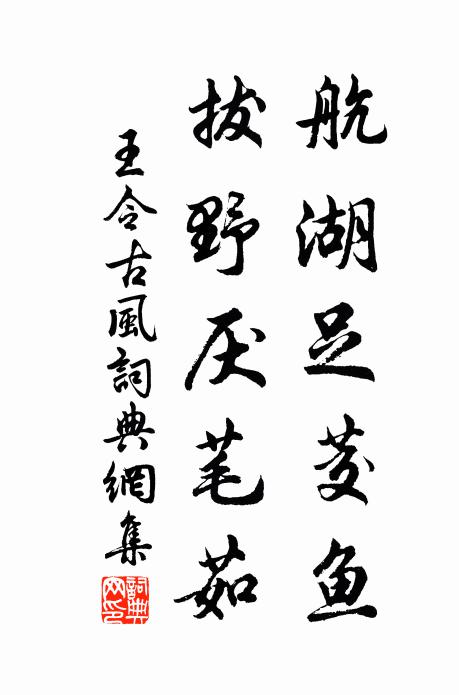 航湖足芰鱼
拔野厌芼茹
王令古風詞典網集
詞典网印